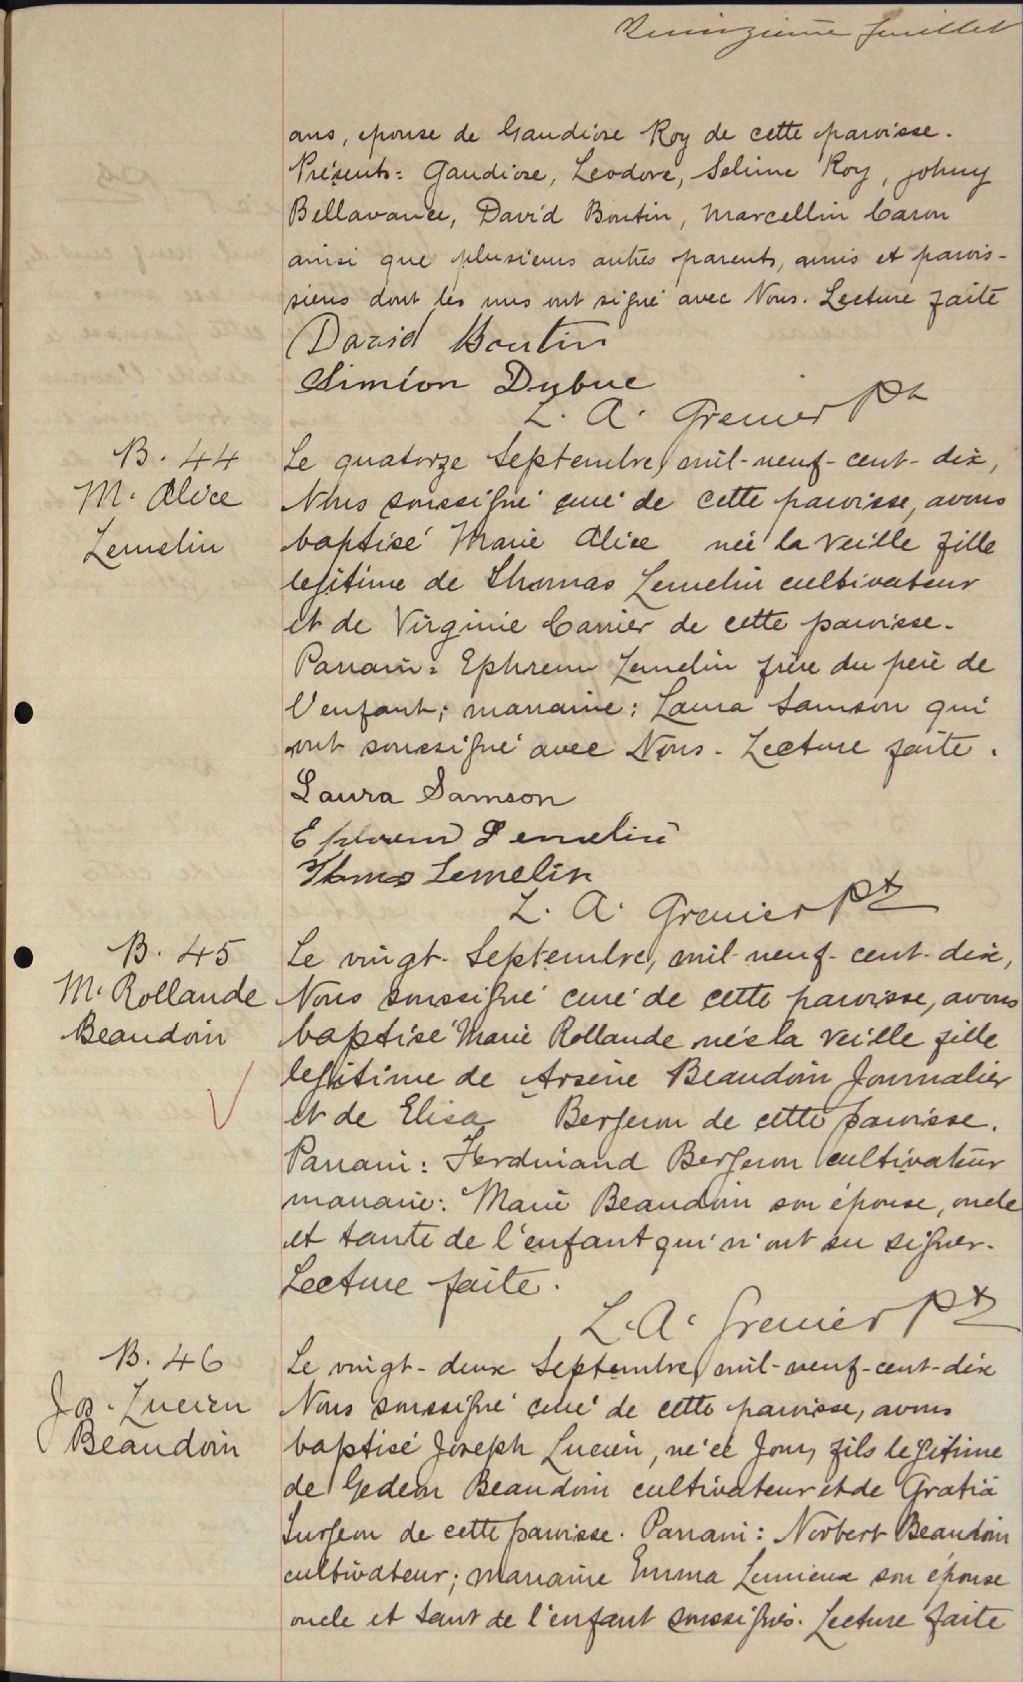 Quinzième feuillet
ans, epouse de Gaudiose Roy de cette paroisse.
Présents: Gaudiose, Leodore, Selime Roy, Johny
Bellavance, David Boutin, Marcellin Caron
ainsi que plusieurs autres parents, amis et parois-
siens dont les uns ont signé avec Nous. Lecture faite
David Boutin
Siméon Dubuc
L. A. Grenier Pt
B. 44
M. Alice
Lemelin
Le quatorze Septembre, mil-neuf-cent-dix,
Nous soussigné curé de cette paroisse, avons
baptisé Marie Alice née la veille fille
legitime de Thomas Lemelin cultivateur
et de Virginie Carrier de cette paroisse.
Parrain: Ephrem Lemelin frère du père de
l'enfant; marraine: Laura Samson qui
ont soussigné avec Nous. Lecture faite.
Laura Samson
Ephrem Lemelin
Thmas Lemelin
L. A. Grenier Pt
B. 45
M. Rollande
Beaudoin
Le vingt Septembre, mil-neuf-cent-dix,
Nous soussigné curé de cette paroisse, avons
baptisé Marie Rollande née la veille fille
legitime de Arsène Beaudoin Journalier
et de Elisa Bergeron de cette paroisse.
Parrain: Ferdinand Bergeron cultivateur
marraine: Marie Beaudoin son épouse, oncle
et tante de l'enfant qui n'ont su signer.
Lecture faite.
L. A. Grenier Pt
B. 46
Jos. Lucien
Beaudoin
Le vingt-deux Septembre, mil-neuf-cent-dix
Nous soussigné curé de cette paroisse, avons
baptisé Joseph Lucien, né ce Jour, fils legitime
de Gedeon Beaudoin cultivateur et de Gratia
Turgeon de cette paroisse. Parrain: Norbert Beaudoin
cultivateur; marraine Emma Lemieux son épouse
oncle et tant de l'enfant soussignés. Lecture faite